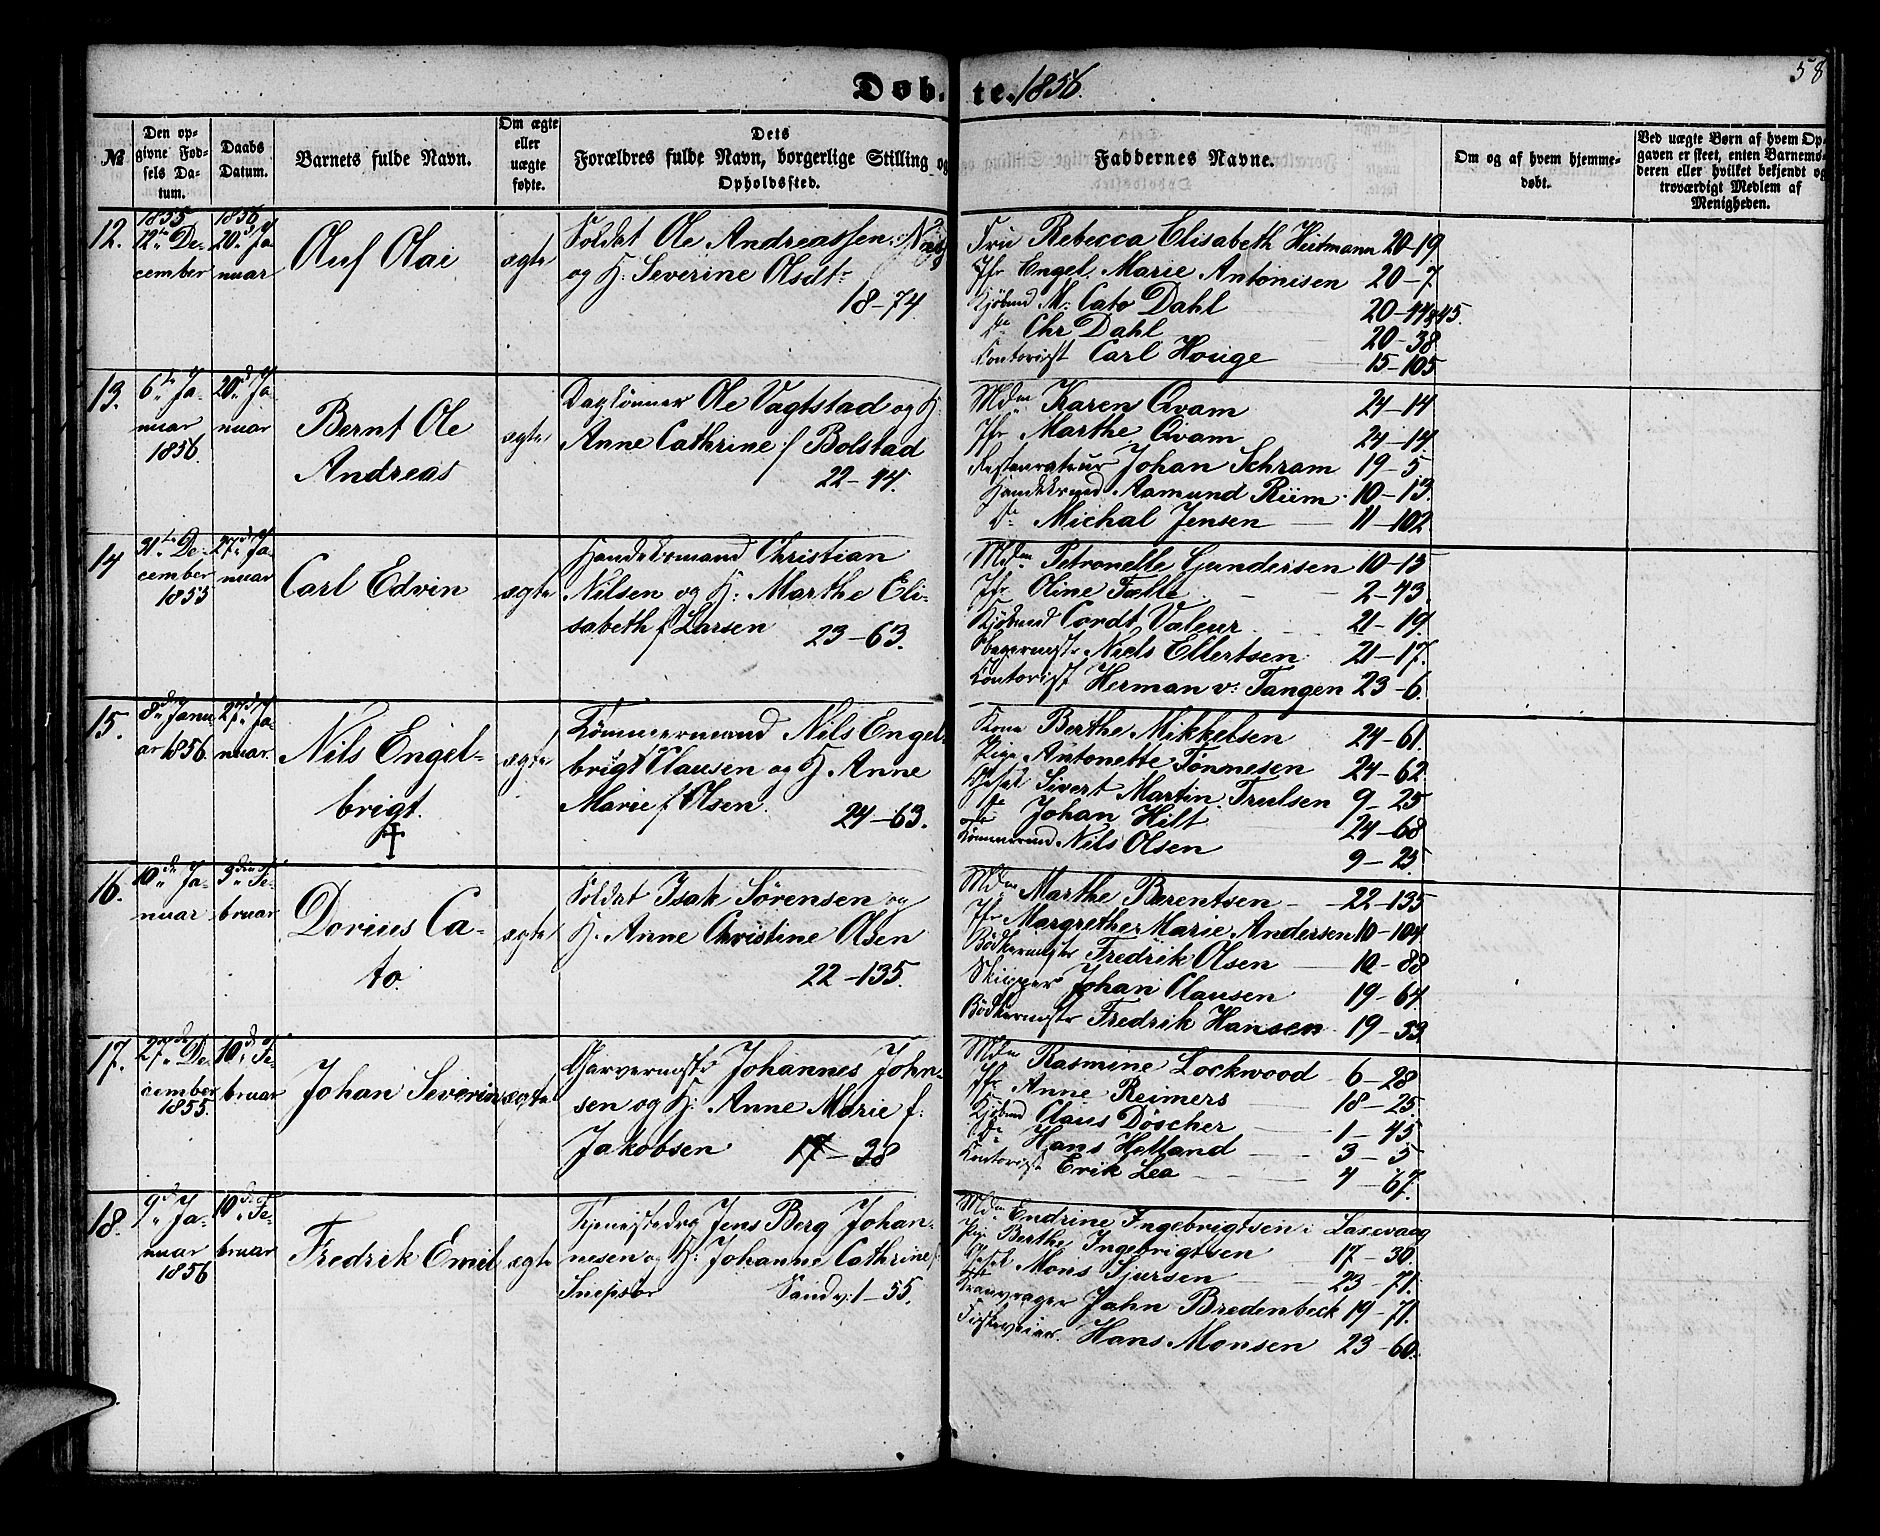 Døb. te. 1856.
58
№
Den opgivne Fødsels Datum.
Daabs Datum.
Barnets fulde Navn.
Om ægte eller uægte fødte.
Dets Forældres fulde Navn, borgerlige Stilling og Opholdssted.
Faddernes Navne.
Om og af hvem hjemmedøbt.
Ved uægte Børn af hvem Opgaven er skeet, enten Barnemoderen eller hvilket bekjendt og troværdigt Medlem af Menigheden.
12.
1855 12te December
1856 20de Januar
Oluf Olai
ægte
Soldat Ole Andreassen
og H: Severine Olsdtr
18-74
Fru Rebecca Elisabeth Heitmann 20-19
Jfr Engel Marie Antonisen 20-7
Kjøbmd M: Cato Dahl 20-44&45.
do Chr Dahl 20-38
Contorist Carl Houge 15-105
13.
6te Januar 1856.
20de Januar
Bernt Ole
Andreas
ægte
Daglønner Ole Vagtstad og H.
Anne Cathrine f Bolstad
22-44.
Mdm Karen Qvam 24-14
Jfr Marthe Qvam 24-14.
Restaurateur Johan Schram 19-5
Handelsmd Aamund Riim 10-13.
do Michal Jensen 11-102
14
31te December 1855
27de Januar
Carl Edvin
ægte
Handelsmand Christian
Nilsen og H: Marthe Eli-
sabeth f Larsen 23-63.
Mdm Petronelle Gundersen 10-13
Jfr Oline Fælle 2-43.
Kjøbmd Cordt Valeur 21-19.
Bagermstr Niels Ellertsen 21-17.
Contorist Herman v: Tangen 23-6.
15.
8de Januar 1856.
27de Januar.
Nils Engel-
brigt.
†
ægte
Tømmermand Nils Engel-
brigt Clausen og H. Anne
Marie f Olsen. 24-63.
Kone Berthe Mikkelsen 24-61.
Pige Antonette Tønnesen 24-62.
Gesel Sivert Martin Trulsen 9-25
do Johan Hilt 24-68
Tømmermd Nils Olsen 9-25.
16.
10de Januar
3die Februar
Dorius Ca-
to.
ægte
Soldat Isak Sørensen og
H. Anne Christine Olsen
22-135.
Mdm Marthe Berentsen 22-135
Jfr Margrethe Marie Andersen 10-104
Bødkermstr Fredrik Olsen 10-88
Skipper Johan Clausen 19-64
Bødkermstr Fredrik Hansen 19-53
17.
27de December 1855.
10de Februar
Johan Severin
ægte
Garvermstr Johannes John-
sen og H: Anne Marie f:
Jakobsen 17-38
Mdm Rasmine Lockwood 6-28
Jfr Anne Reimers 18-25.
Kjøbmd Claus Döscher 1-45
do Hans Hatland 3-5
Contorist Erik Lea 4-67.
18.
9de Januar 1856
10de Februar
Fredrik Emil
ægte
Tjenistedrg Jens Berg Johan-
nesen og H: Johanne Cathrine f:
Snepsor Sandv: 1-55.
Mdm Endrine Ingebrigtsen i Laxevaag
Pig Berthe Ingebrigtsen 17-30.
Gesel Mons Sjursen 23-71.
Kranvrager Jahn Bredenbeck 19-71.
Fiskeveier Hans Monsen 23-60.